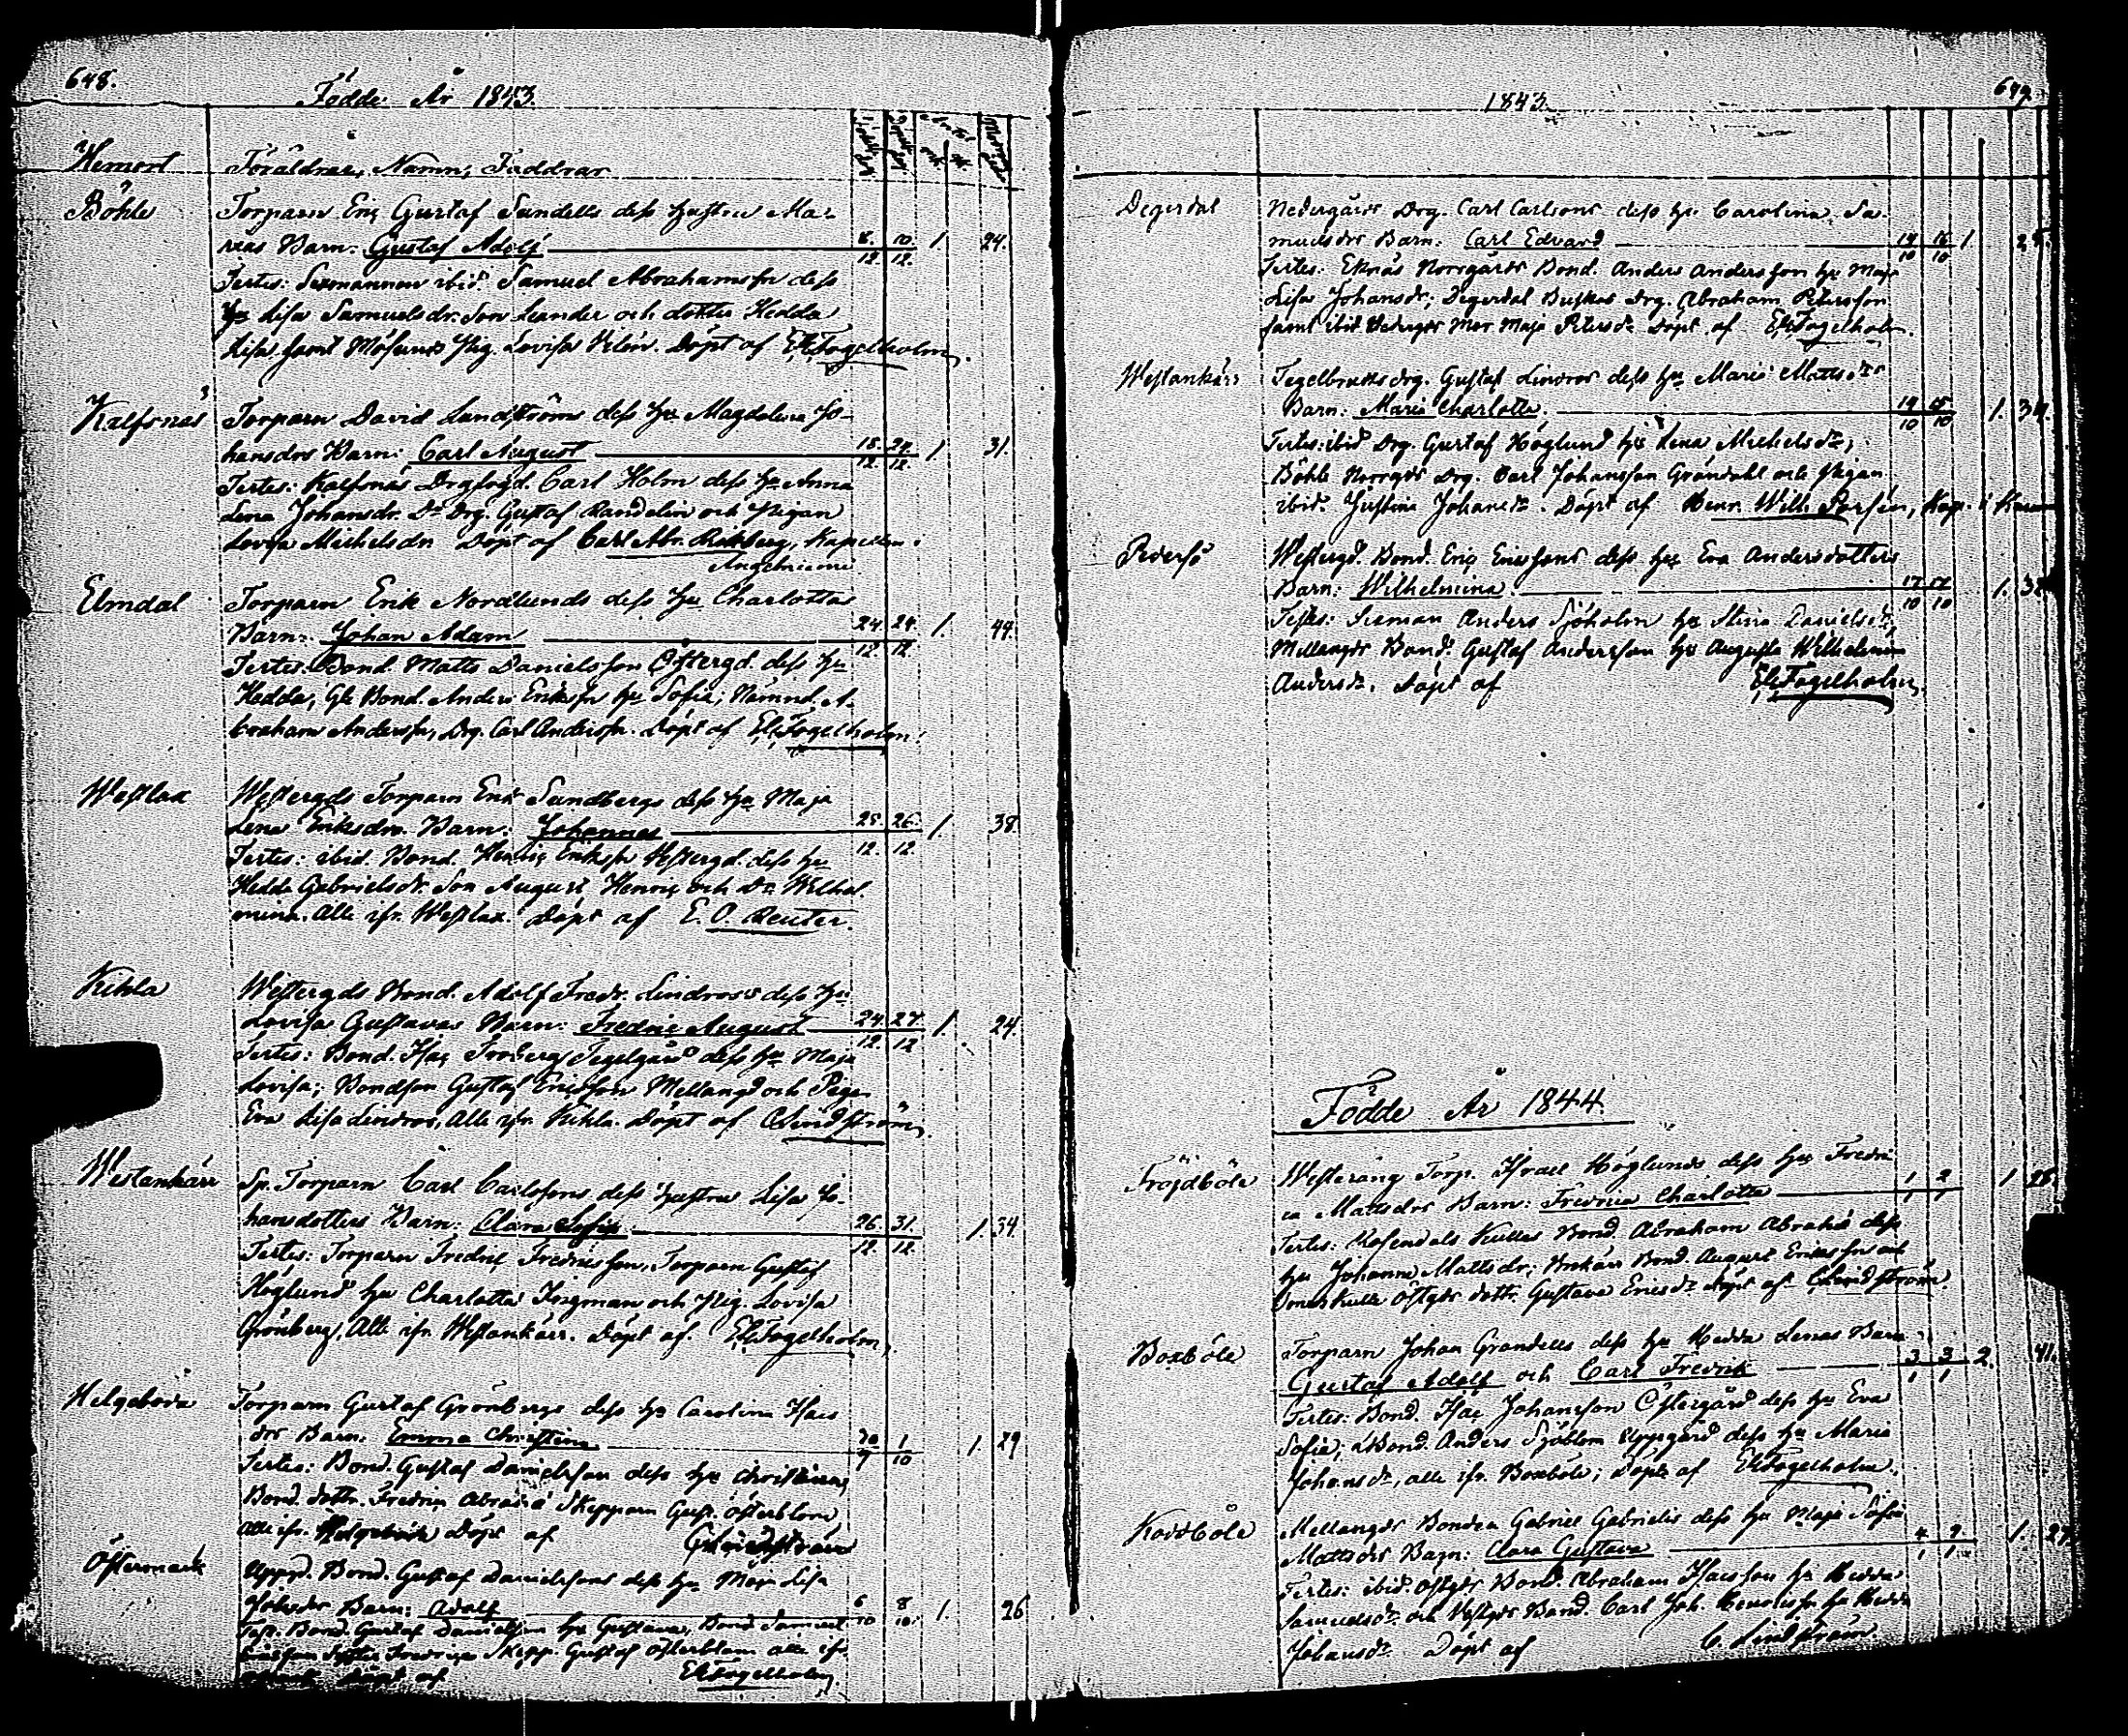 648.
Födde År 1843.
Hemort
Föräldrar, Namn, Faddrar
Böhle
Torparn Eriç Gustaf Sundells dess hustru Ma-
rias Barn: Gustaf Adolf 8. 10. 1. 24.
12. 12.
Testes: Sexmannen ibid. Samuel Abrahamsson dess
hu Lisa Samuelsdr. Son Leander och dotter Hedda
Lisa samt Pig. Lovisa Döpt af Fogelholm.
Kalfsnäs
Torparn David Lundströms dess hu Magdalena Jo-
hansdrs Barn: Carl August 18. 24. 1 31.
12. 12.
Testes: Kalfsnäs Drgfogd. Carl Holm dess hu Anna
Lena Johansdr. Do Drg. Gustaf Randelin och Pigan
Lovisa Michelsdr Döpt af Carl Abr. Kapellan i
Angelniemi
Elmdal
Torparn Erik Nordlunds dess hu Charlottas
Barn: Johan Adam 24. 29. 1. 44.
12. 12
Testes: Bond. Matts Danielsson Östergd. dess hu
Hedda, Gle Bond. Anders Eriksn hu Sofia; Nämnd. A-
braham Anderssn, Drg. Carl Anderssn. Döpt af Fogelholm.
Westlax
Westergds Torparn Erik Sundbergs dess hu Maja
Lena Eriksdrs Barn: Johannes 25. 26. 1. 38.
12. 12.
Testes: ibid. Bond. Henriç Erikssn Westergd. dess hu
Hedda Gabrielsdr. Son August Henriç och Dr Wilhel-
mina. Alle ifr. Westlax. Döpt af E. O. Reuter.
Kihla
Westergds Bond. Adolf Fredr. Lindroos dess hu
Lovisa Gustavas Barn: Fredric August 24. 27. 1. 24.
12. 12
Testes: Bond. Isaç Froberg Tegelgård dess hu Maja
Lovisa; Bondson Gustaf Ericsson Mellangd och Piga
Eva Lisa Lindroos, Alle ifr. Kihla. Döpt af C Lindström.
Westankärr
Sp. Torparn Carl Carlssons dess hustru Lisa Jo-
hansdotters Barn: Clara Sofia 26. 31. 1. 34
12. 12.
Testes: Torparn Fredriç Fredriksson, Torparn Gustaf
Höglund hu Charlotta Kingman och Pig. Lovisa
Grönberg, Alle ifr. Westankärr. Döpt af. Fogelholm,
Helgeboda
Torparn Gustaf Grönbergs dess hu Carolina Isacs
drs Barn: Emma Christina 30 1 1. 29
9 10
Testes: Bond. Gustaf Danielsson dess hu Christina,
Bond. dottr. Fredrica Skepparn Gust. Österblom
alle ifr. Helgeboda Döpt af C Lindström
Östermark
Uppd. Bond. Gustaf Danielssons dess hu Maja Lisa
Johsdrs Barn: Adolf 6 8 1. 26
10 10.
Test. Bond. Gustaf Danielsson hu Gustava, Bond Samuel
Fredrica Skepp. Gustaf Österblom alle ifr.
Döpt af Fogelholm
649.
1843.
Degerdal
Nedergårds Drg. Carl Carlsons dess hu Carolina Sa-
muelsdrs Barn: Carl Edvard 14 15 1 28.
10 10
Testes: Eknäs Norrgårds Bond. Anders Andersson hu Maja
Lisa Johansdr; Degerdal Buskas Drg. Abraham Petersson
samt ibid Nedergrds Mor Maja Petersdr Döpt af Fogelholm.
Westankärr
Tegelbruks drg. Gustaf Lindroos dess hu Maria Mattsdrs
Barn: Maria Charlotta. 14 15 1. 34.
10 10
Testes: ibid Drg. Gustaf Höglund hu Lena Michelsdr;
Böhle Norrgds Drg. Carl Johansson Grandahl och Pigan
ibid. Justina Johansdr. Döpt af Henr. Wilh. Porsén, Kap. i
Pedersö
Westergd. Bond. Eriç Ericssons dess hu Eva Andersdotters
Barn: Wilhelmina. 17 17 1. 32
10 10
Testes: Sexman Anders Sjöholm hu Stina Danielsdr,
Mellangds Bond. Gustaf Andersson hu Augusta Wilhelmina
Andersdr. Döpt af Fogelholm.
Födde År 1844.
Fröjdböle
Westeräng Torp. Israel Höglunds dess hu Fredri-
ca Mattsdrs Barn: Fredrica Charlotta 1 2 1 28.
1 1
Testes: Rosendals Kullas Bond. Abraham dess
hu Johanna Mattsdr; Bond. August Ericsson och
Kulla Östgds dottr. Gustava Ericsdr Döpt af C Lindström.
Boxböle
Torparn Johan Grandells dess hu Hedda Lenas Barn
Gustaf Adolf och Carl Fredrik 3 3 2. 41.
1 1
Testes: Bond. Isaç Johansson Östergård dess hu Eva
Sofia; Bond. Anders Sjöblom Uppegård dess hu Maria
Johansdr, alle ifr. Boxböle; Döpt af Fogelholm.
Koddböle
Mellangds Bonden Gabriel Gabriels dess hu Maja Sofia
Mattsdrs Barn: Clara Gustava 4 9 1. 27
1 1
Testes: ibid. Östgds Bond. Abraham Isacsson hu Hedda
Samuelsdr och Westgds Bond. Carl Joh. Henricssn hu Hedda
Johansdr Döpt af C. Lindström.